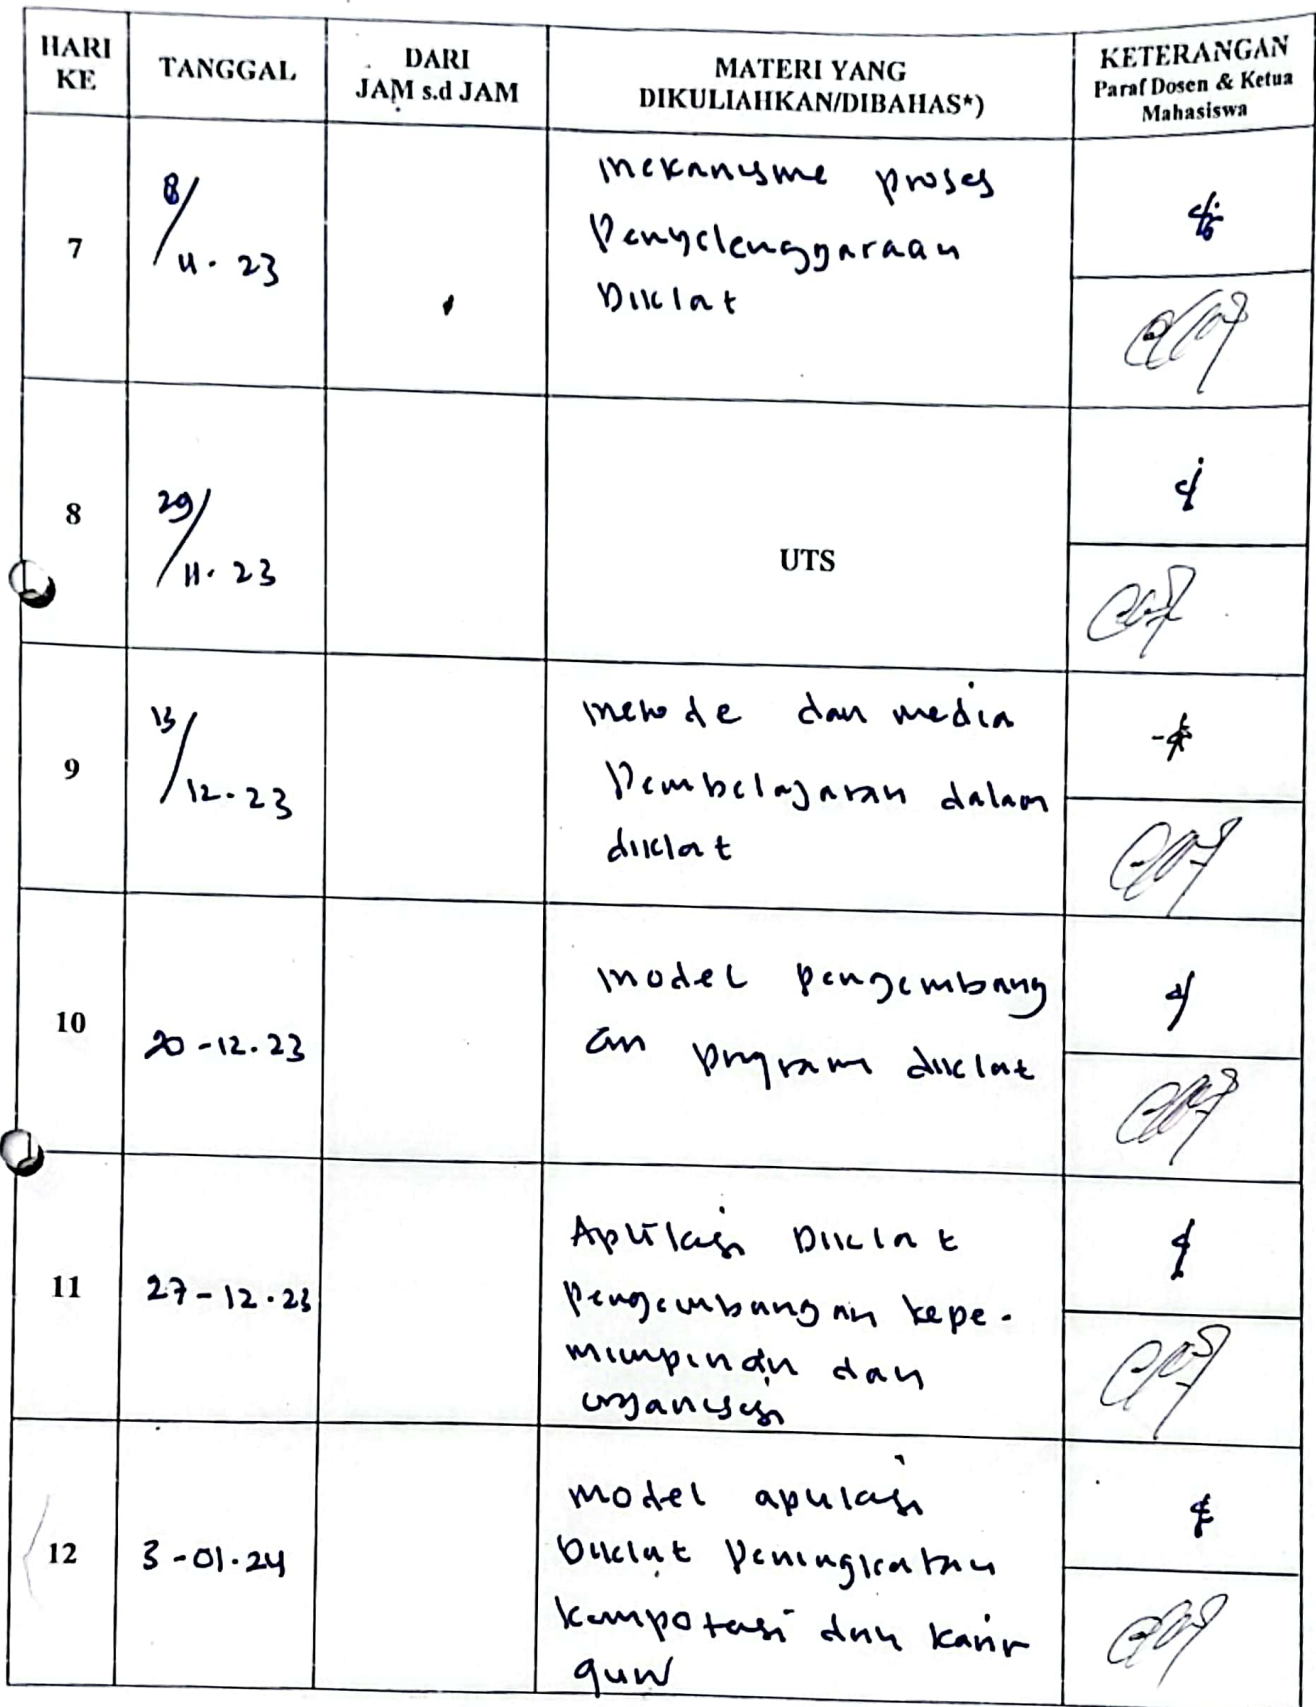 HARI KE
TANGGAL
DARI
JAM s.d JAM
MATERI YANG
DIKULIAHKAN/DIBAHAS*)
KETERANGAN
Paraf Dosen & Ketua
Mahasiswa
7
8/
11.23
Mekanisme proses
Penyelenggaraan
Diklat
8
29/
11.23
UTS
9
13/
12-23
Metode dan media
Pembelajaran dalam
diklat
10
20-12.23
Model pengembang
an program diklat
11
27-12.23
Aplikasi Diklat
Pengembangan kepe-
mimpinan dan
organisasi
12
3-01.24
Model aplikasi
Diklat Peningkatan
kompotasi dan karir
guru